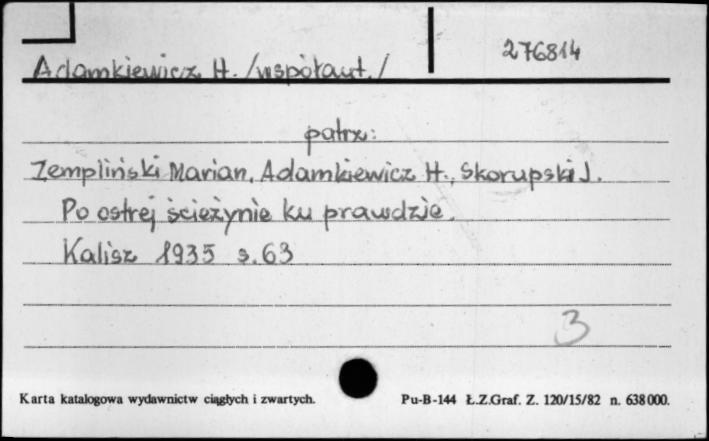 276814
Adamkiewicz H. /współaut./
patrz:
Zempliński Marian, Adamkiewicz H., Skorupski J.
Po ostrej ścieżynie ku prawdzie.
Kalisz 1935 s. 63
3
Karta katalogowa wydawnictw ciągłych i zwartych.
Pu-B-144 Ł.Z.Graf. Z. 120/15/82 n. 638000.